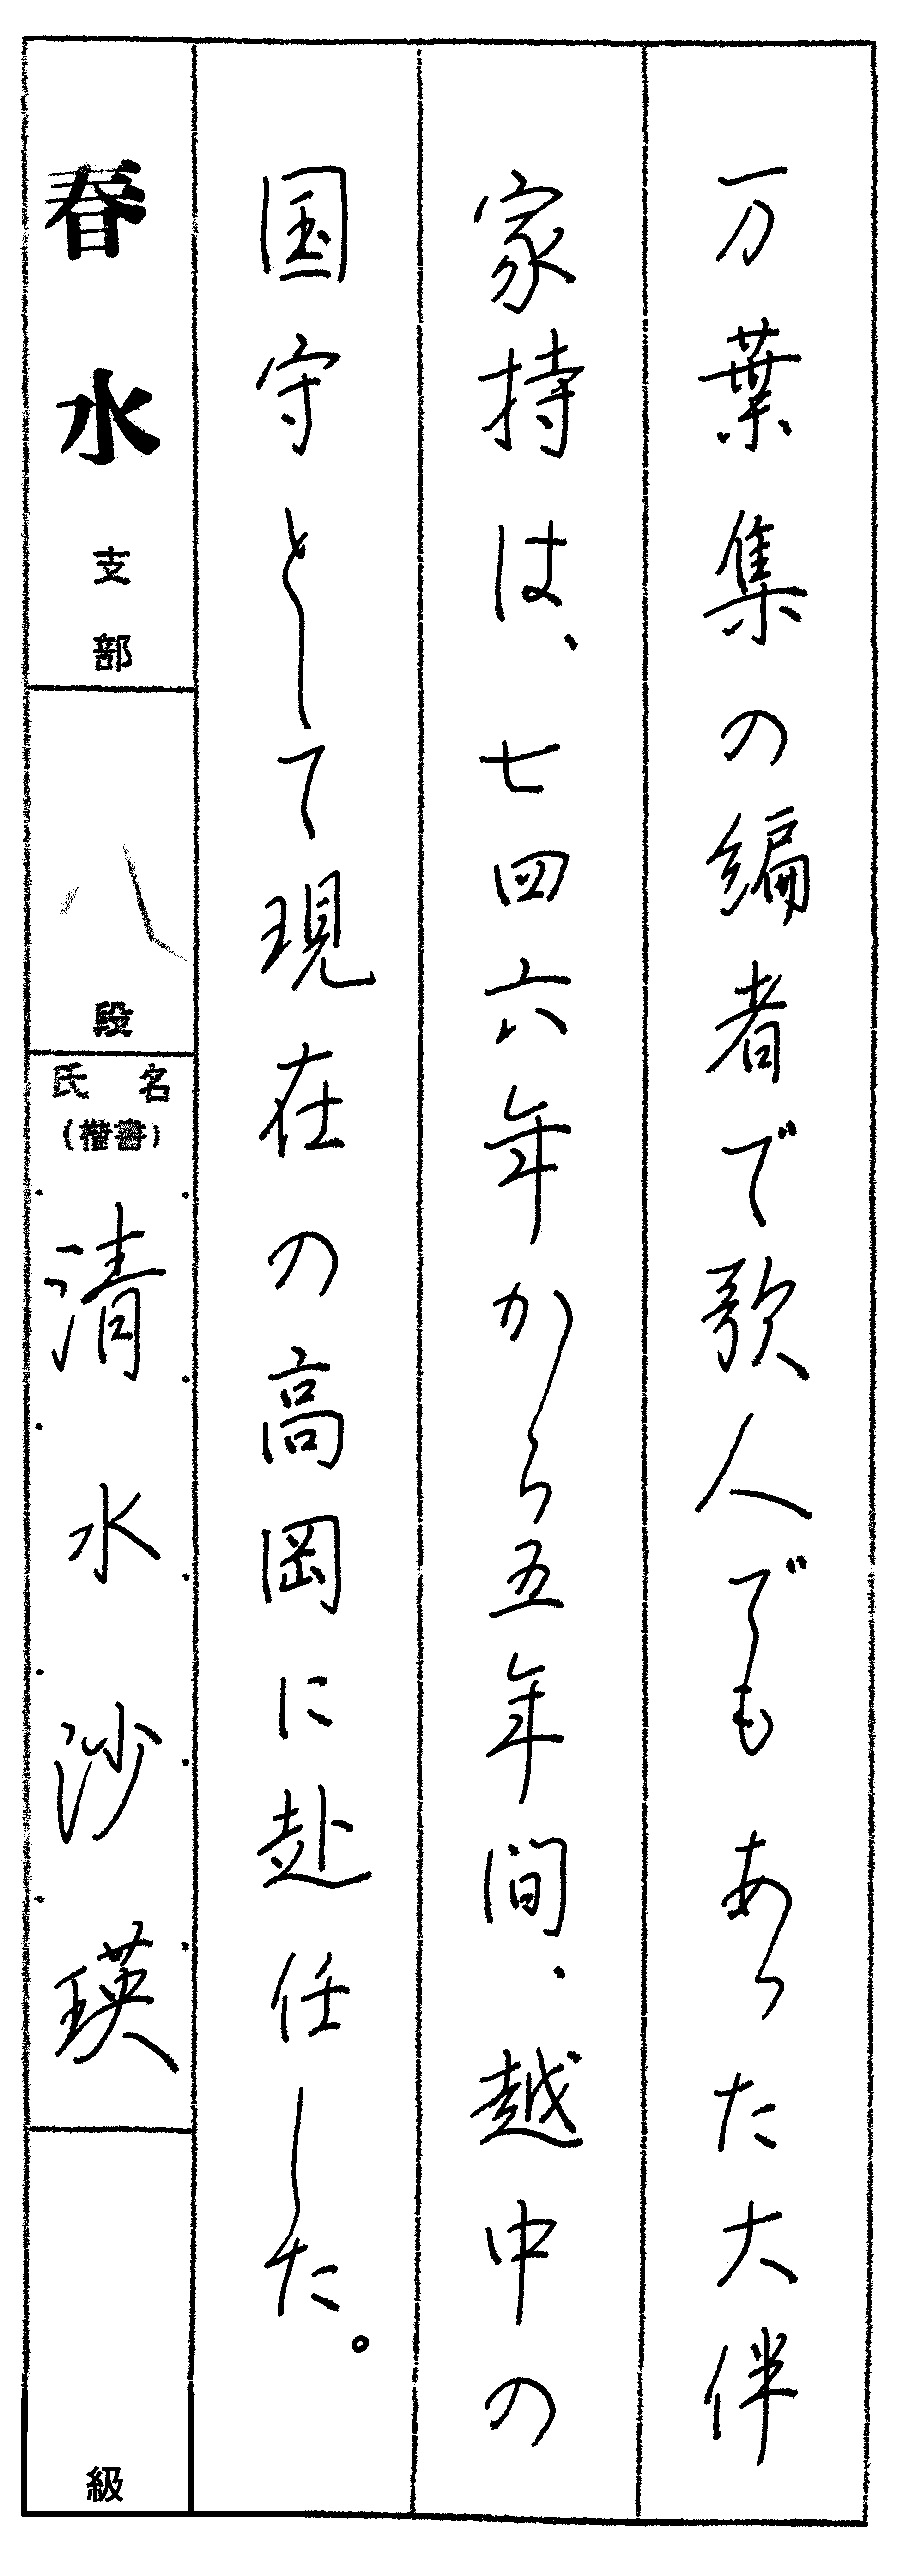 万葉集の編者で歌人でもあった大伴
家持は、七四六年から五年間、越中の
国守として現在の高岡に赴任した。
春水支部
八段
氏名
(楷書)
清水沙瑛
級